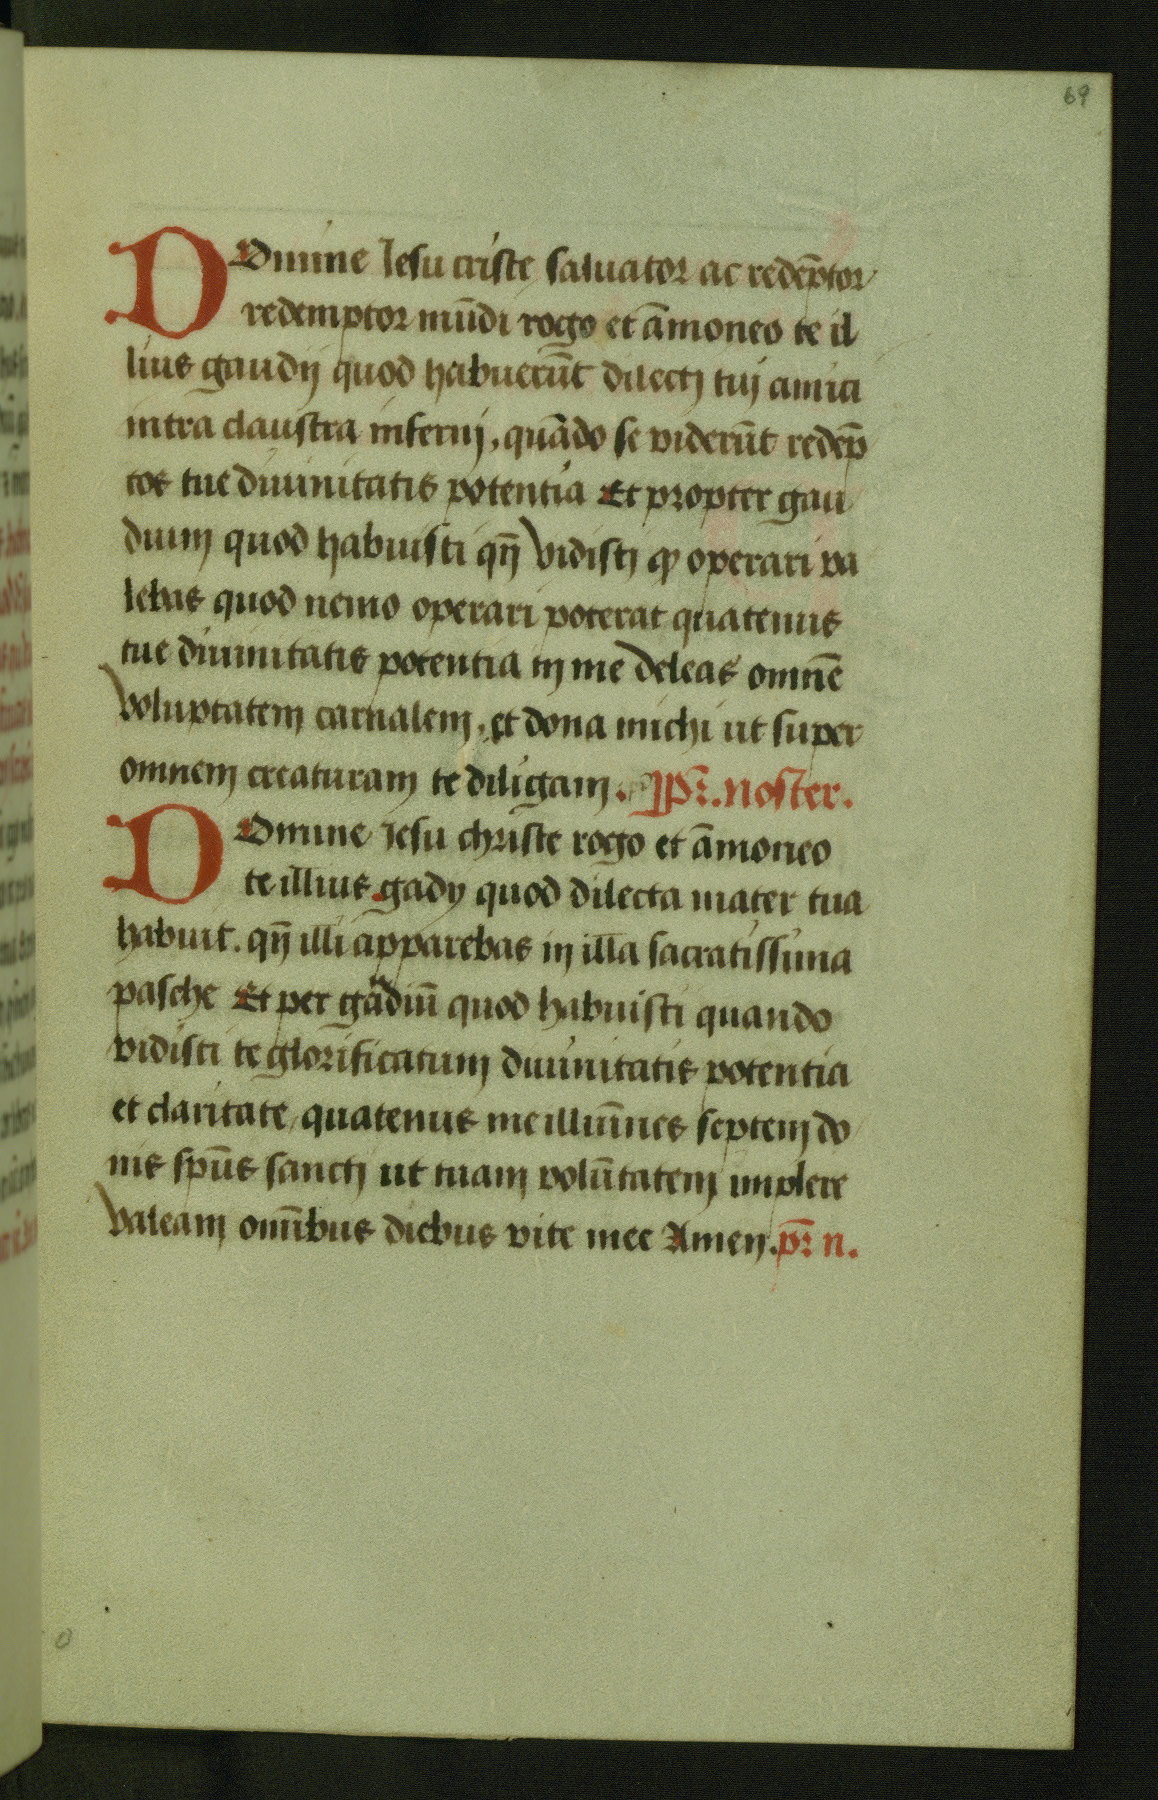 69
DOmine Iesu criste saluator ac redēptor
redemptor mūdi rogo et āmoneo te il
lius gaudij quod habuerūt dilectj tuj amici
intra claustra infernj, quādo se viderūt redēp
tos tue diuinitatis potentia Et propter gau
dium quod habuisti qn̄ vidistj ꝙ operari va
lebas quod nemo operari poterat quatenus
tue diuinitatis potentia in me deleas omnē
voluptatem carnalem, et dona michi ut super
omnem creaturam te diligam. Pr̄. noster.
DOmine Iesu christe rogo et āmoneo
te illius gady quod dilecta mater tua
habuit. qn̄ illi apparebas in illa sacratissima
pasche Et per gādiū quod habuisti quando
vidisti te glorificatum diuinitatis potentia
et claritate, quatenus me illumīnes septem do
nis spūs sanctj ut tuam volūtatem implere
valeam omībus diebus vite mee Amen. pr̄ n.